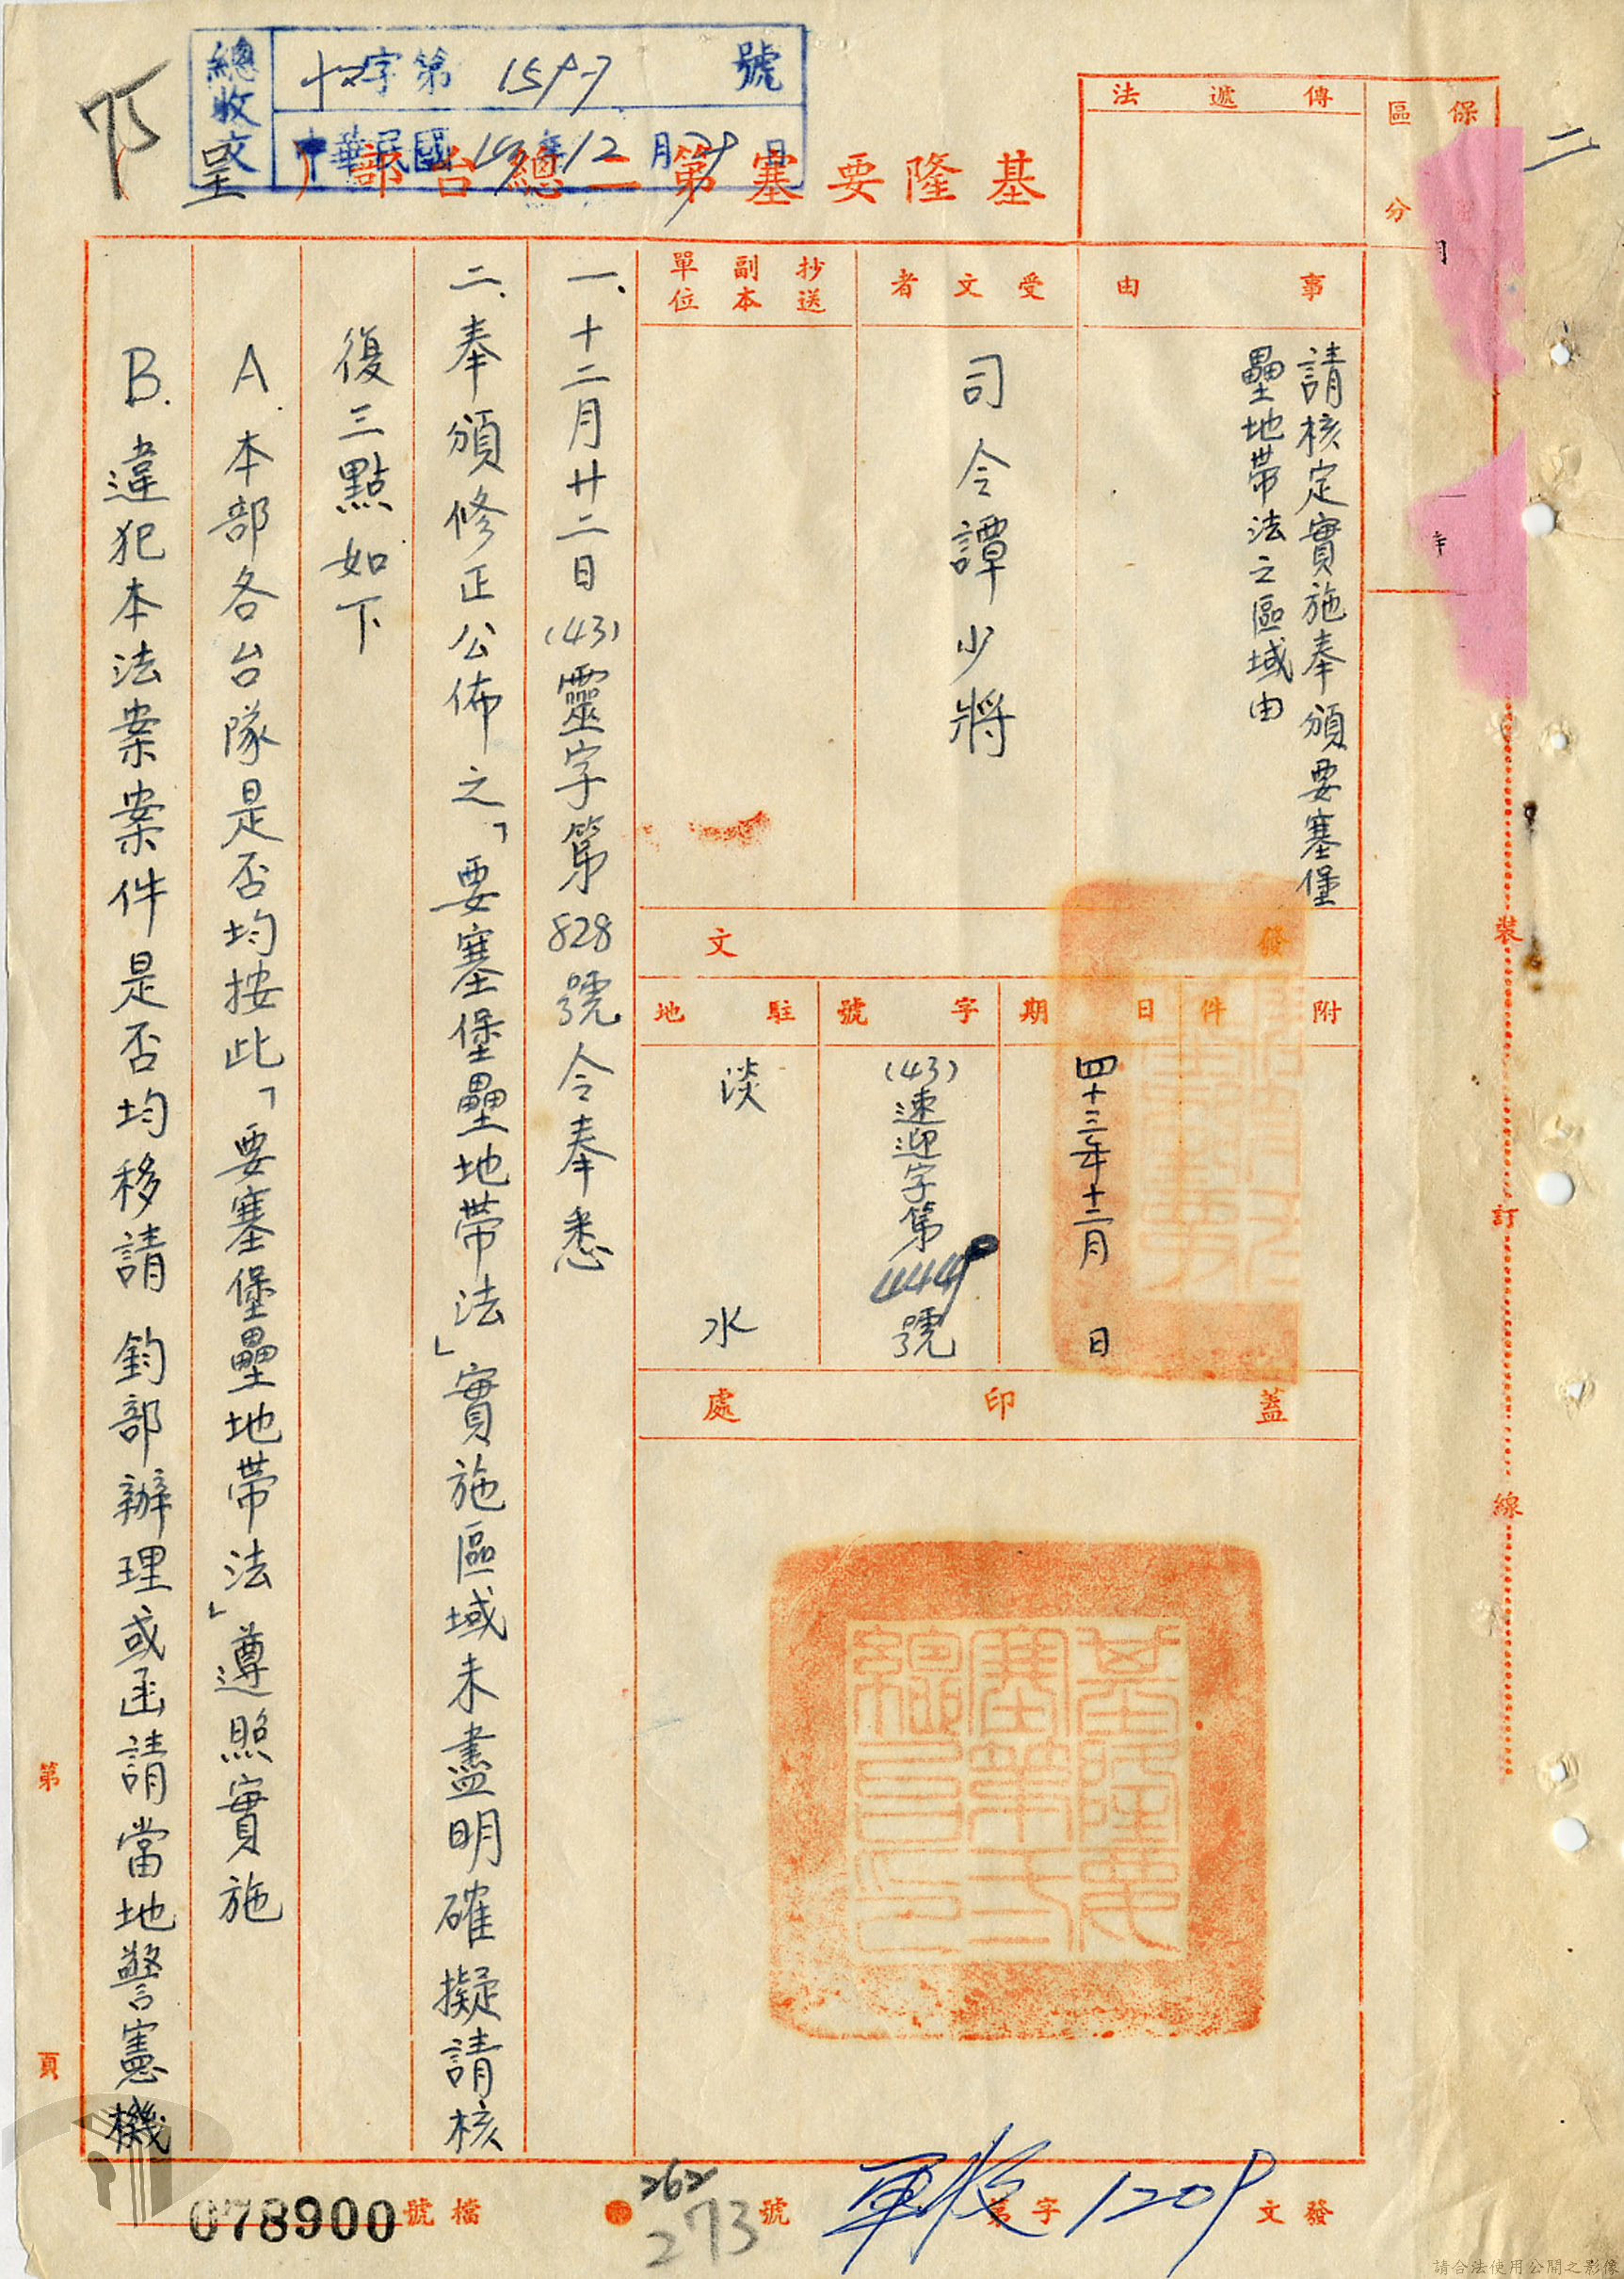 保
區分
傳遞法
基隆要塞第二總台部
呈
總收文
字第1597號
中華民國43年12月29日
事由
請核定實施奉頒要塞堡
壘地帶法之區域由
受文者
司令譚少將
抄送副本單位
發文
附件
日期
四十三年十二月 日
字號
(43)速迎字第449號
駐地
淡水
蓋印處
基隆要塞第二總台印
一、十二月廿二日(43)靈字第828號令奉悉
二、奉頒修正公佈之「要塞堡壘地帶法」實施區域未盡明確擬請核
復三點如下
A.本部各台隊是否均按此「要塞堡壘地帶法」遵照實施
B.違犯本法案案件是否均移請 鈞部辦理或函請當地警憲機
裝
訂
線
第
頁
發文
字第
1209
號
262
273
檔號
078900
請合法使用公開之影像